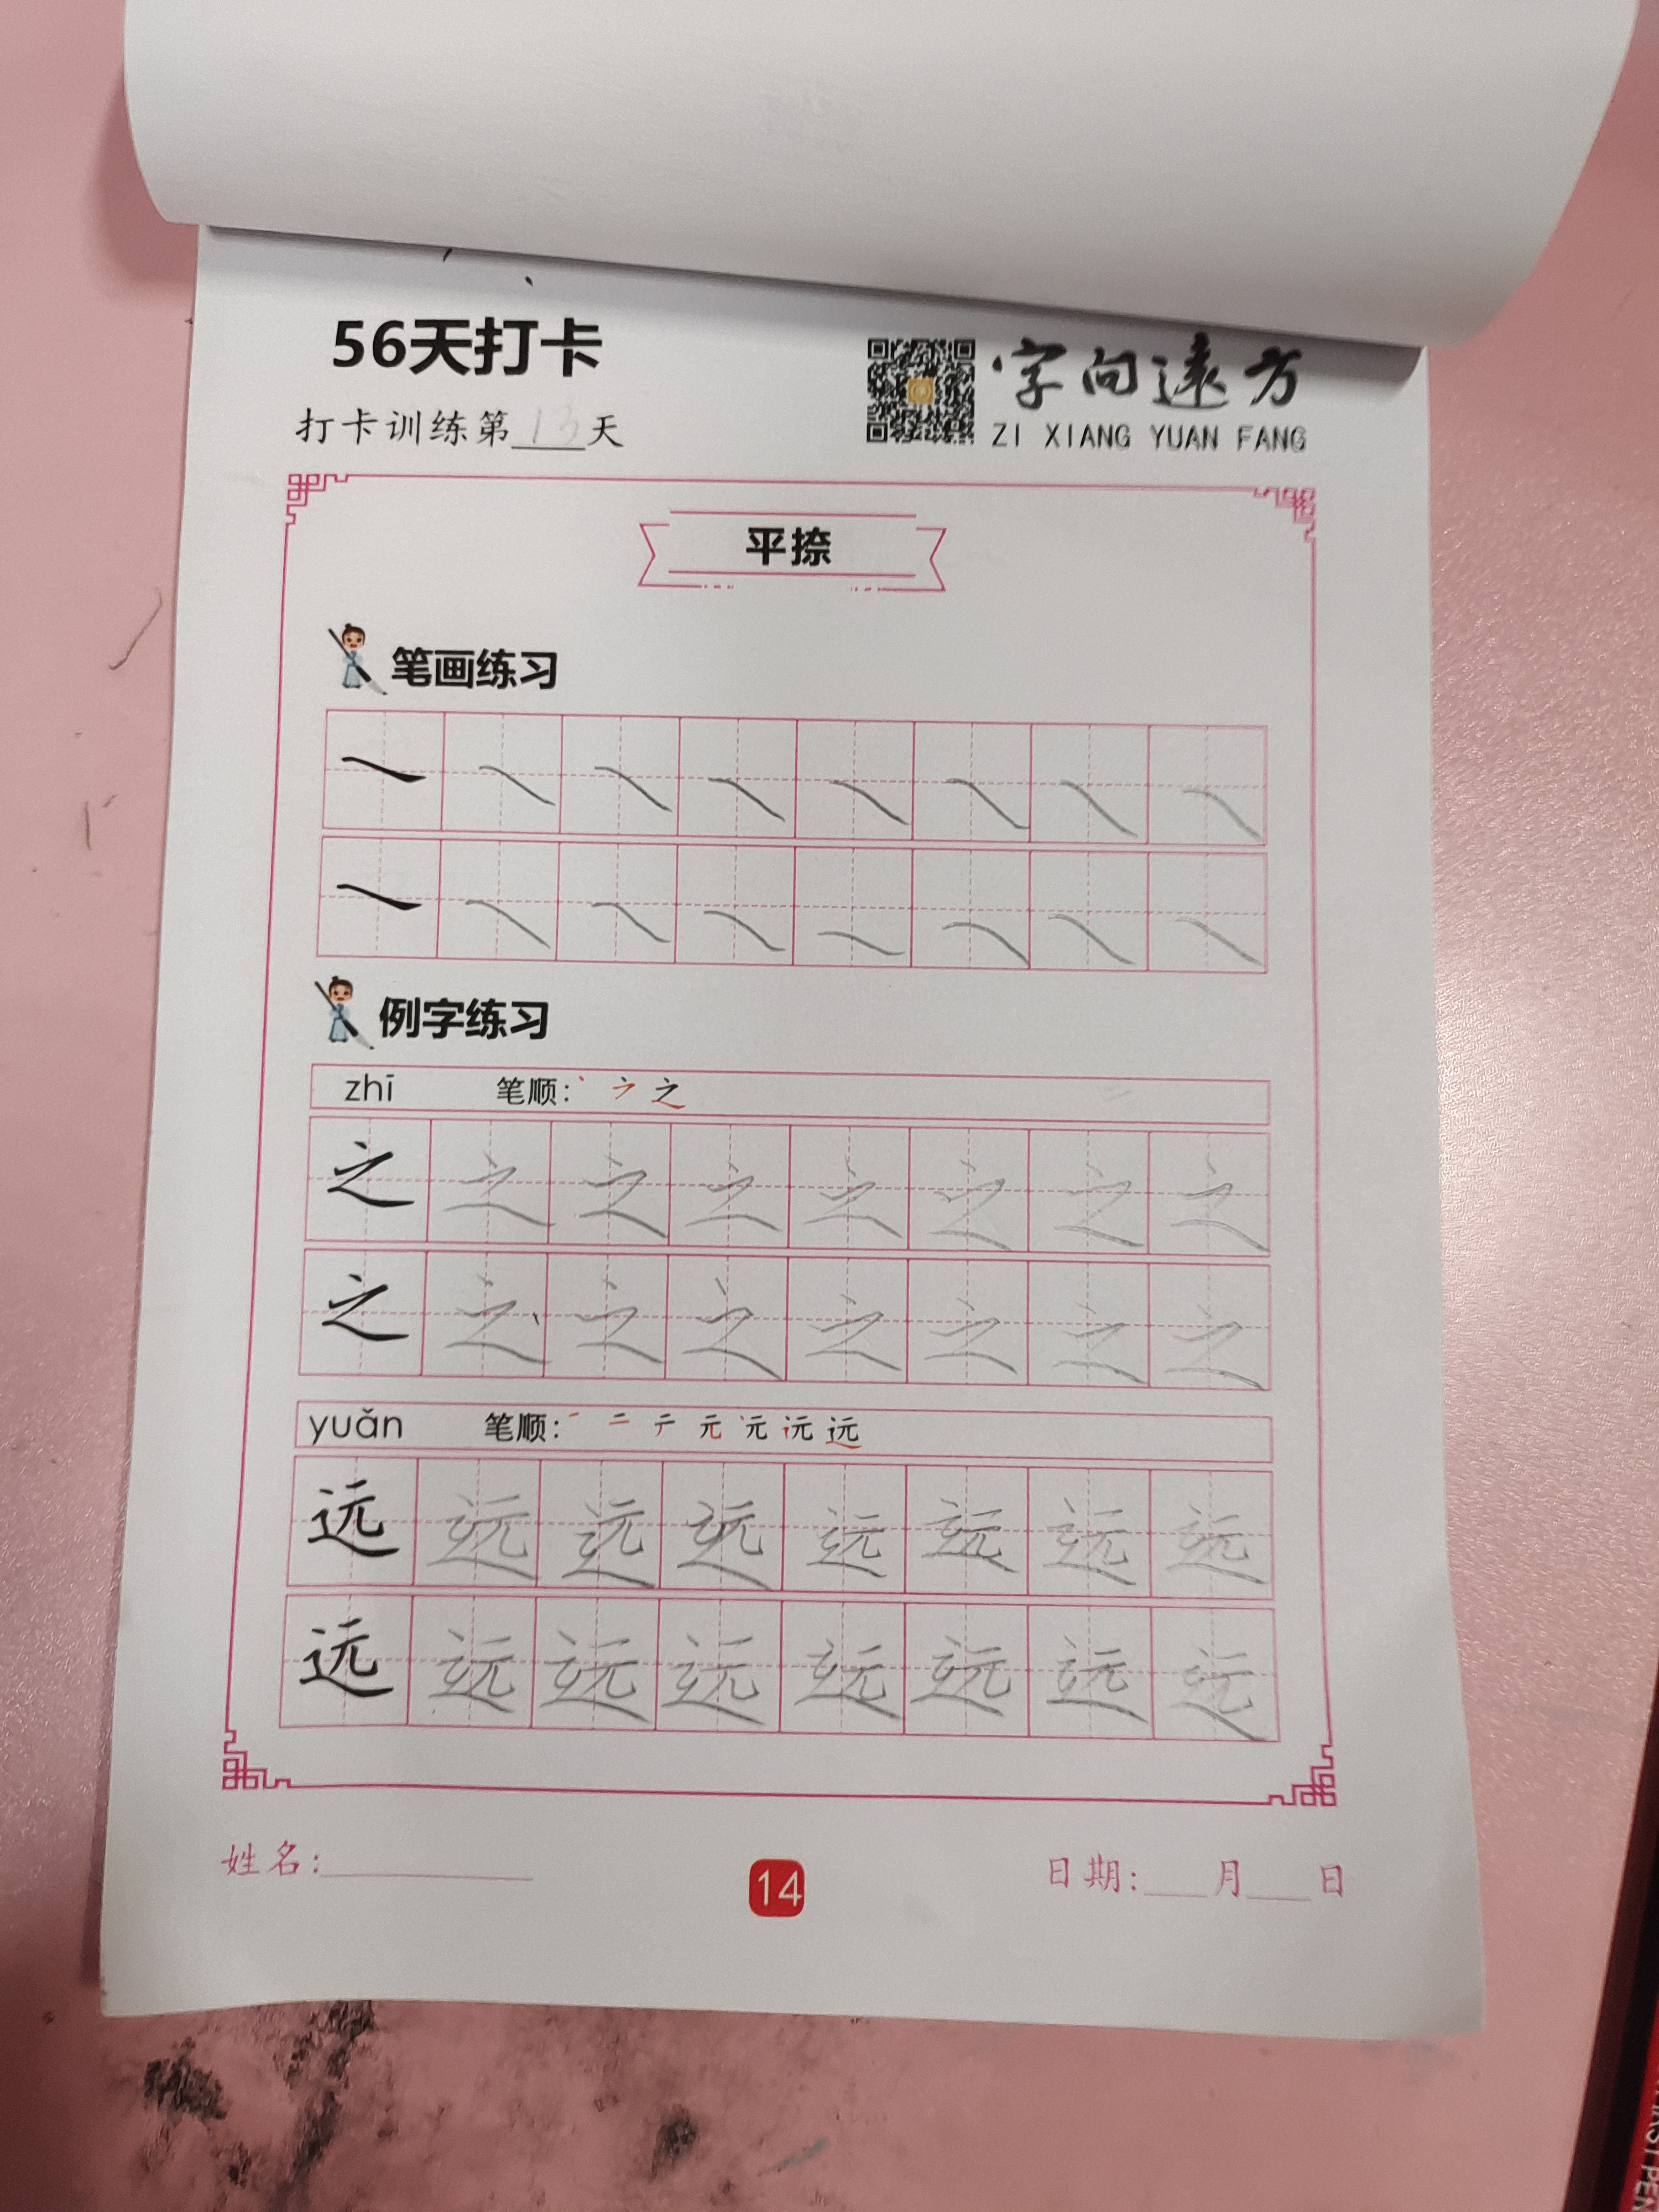 56天打卡
打卡训练第13天
字向遠方
ZI XIANG YUAN FANG
平捺
笔画练习
例字练习
zhī 笔顺: 丶 ㇇ 之
之 之 之 之 之 之 之 之
之 之 之 之 之 之 之 之
yuǎn 笔顺: 一 二 テ 元 元 远 远
远 远 远 远 远 远 远 远
远 远 远 远 远 远 远 远
姓名:
14
日期: 月 日